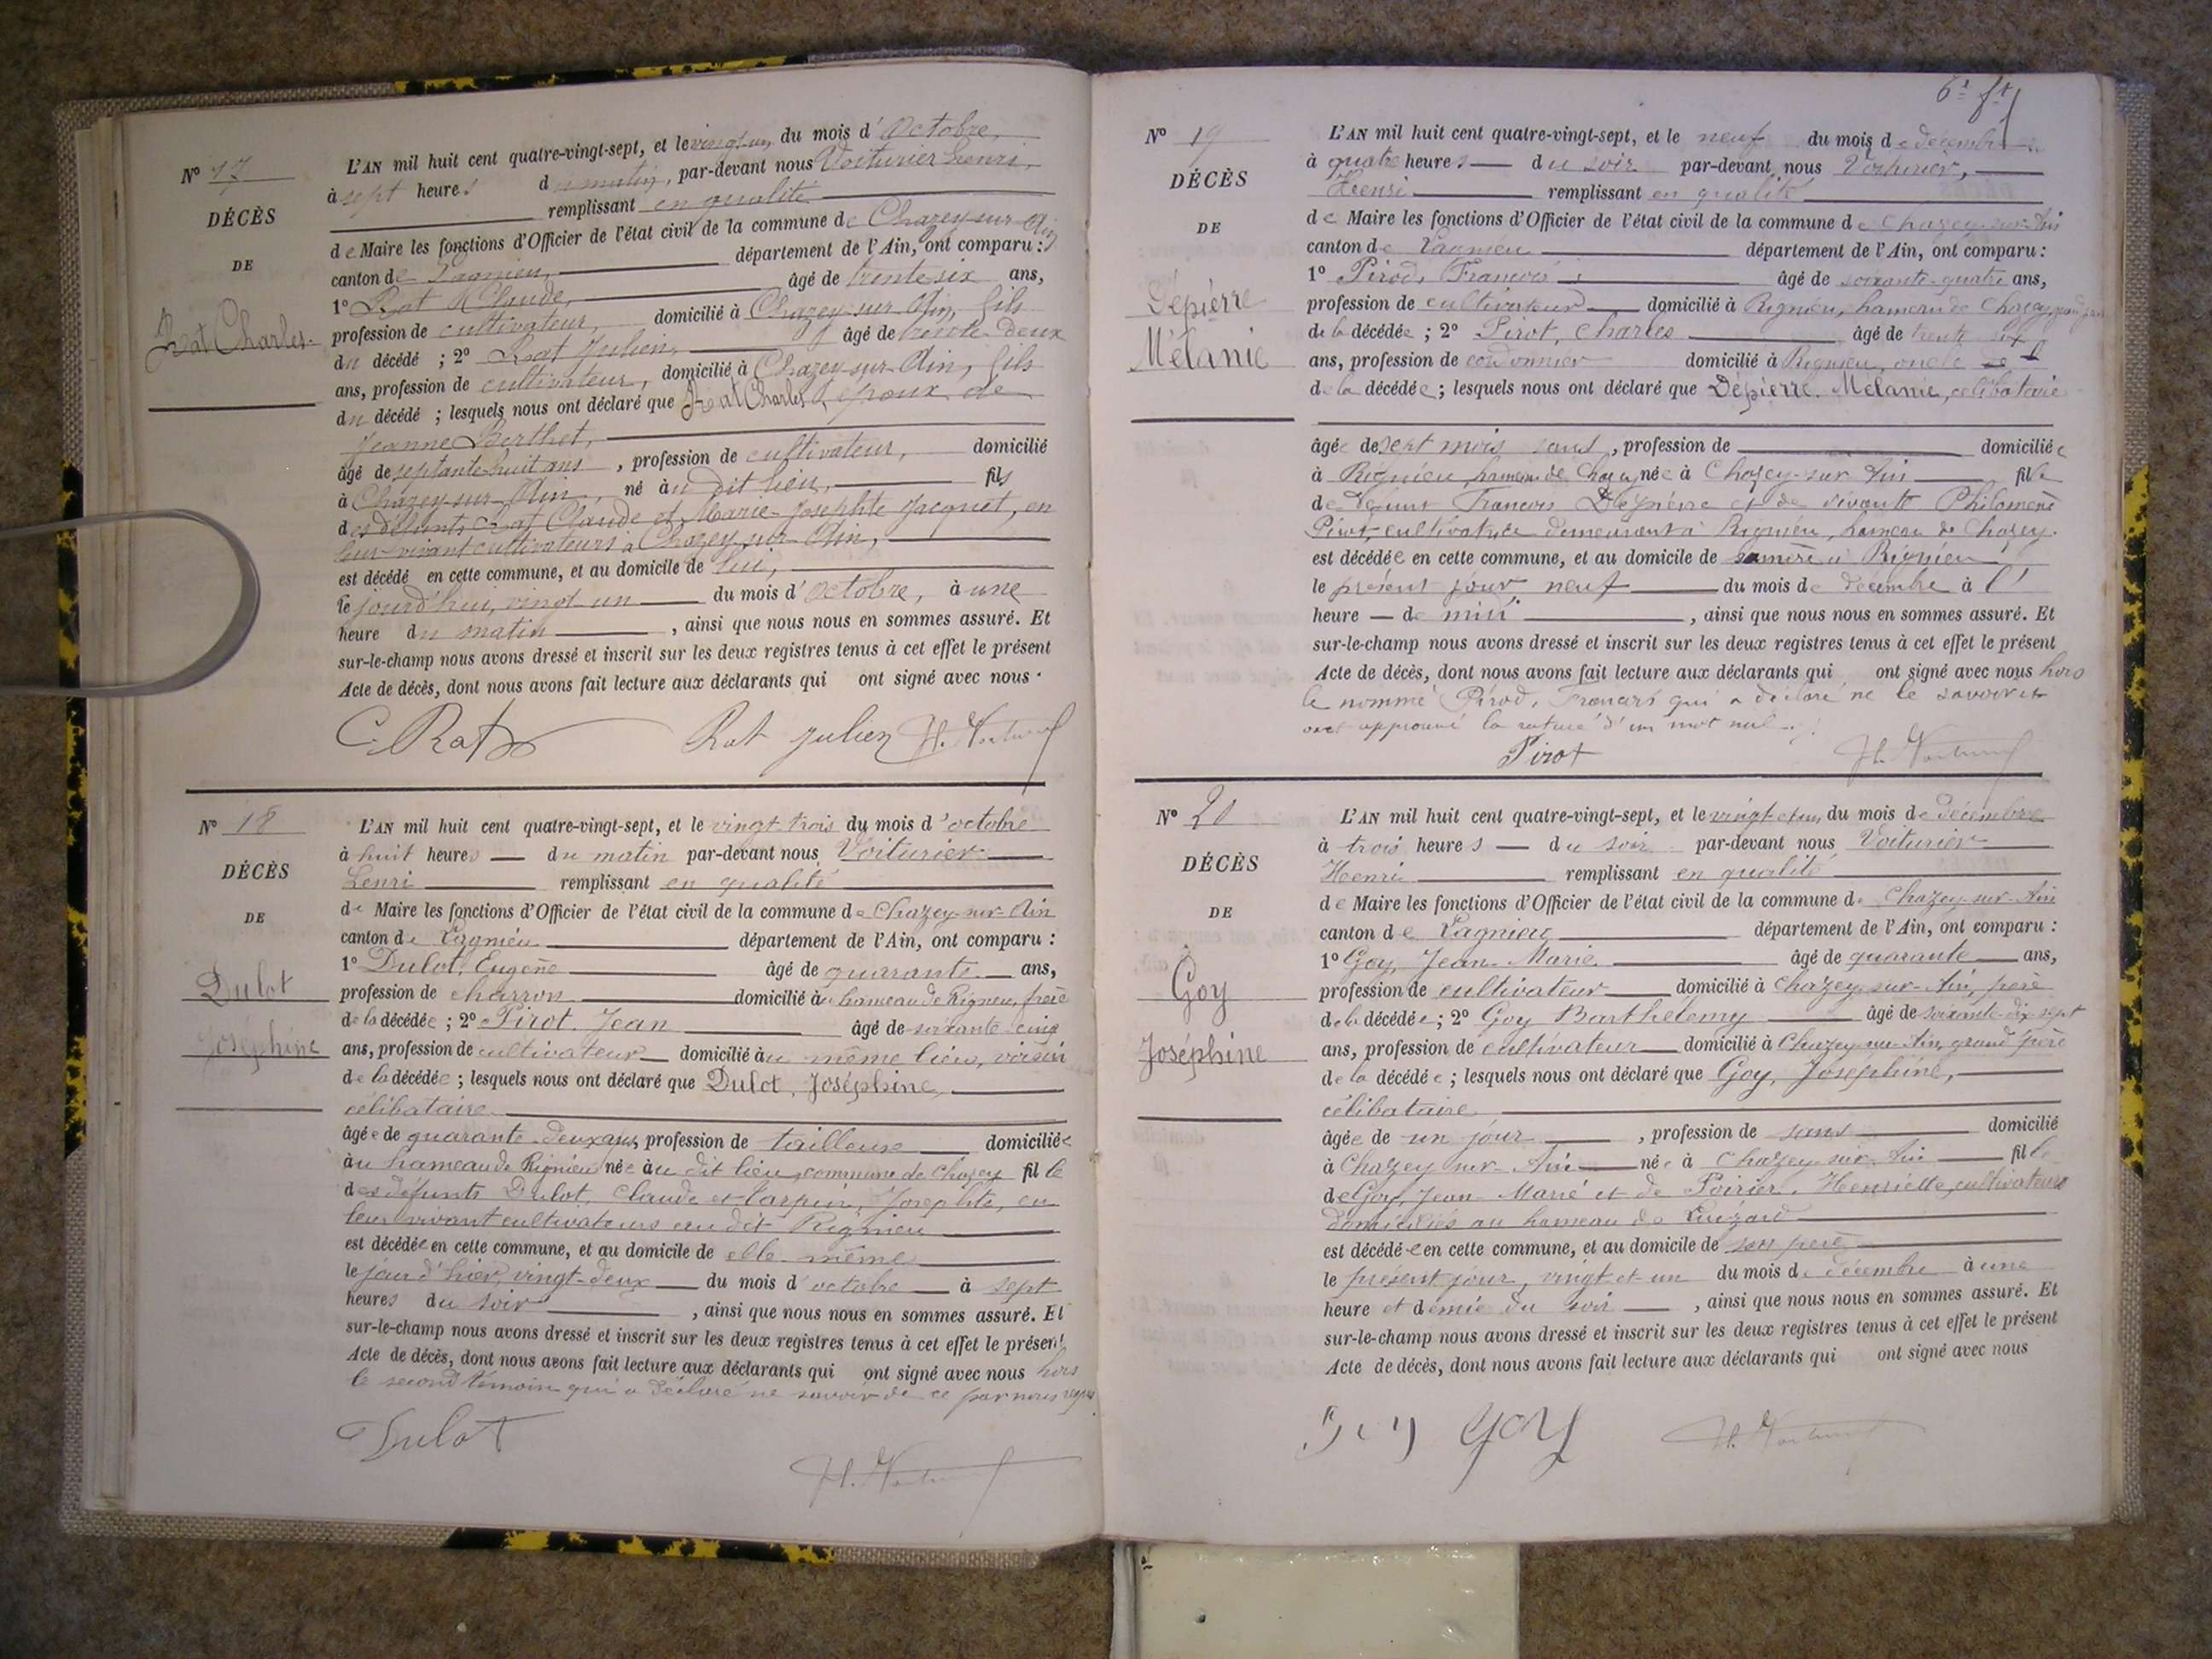 N° 17
DÉCÈS
DE
Rat Charles
L'AN mil huit cent quatre-vingt-sept, et le vingt un du mois d'Octobre,
à sept heures du matin, par-devant nous Voiturier henri,
remplissant en qualité
de Maire les fonctions d'Officier de l'état civil de la commune de Chazey-sur-Ain
canton de Lagnieu, département de l'Ain, ont comparu :
1° Rat Claude, âgé de trente six ans,
profession de cultivateur, domicilié à Chazey-sur-Ain, fils
du décédé ; 2° Rat Julien, âgé de trente-deux
ans, profession de cultivateur, domicilié à Chazey-sur-Ain, fils
du décédé ; lesquels nous ont déclaré que Rat Charles, époux de
Jeanne Berthet,
âgé de septante huit ans, profession de cultivateur, domicilié
à Chazey-sur-Ain, né au dit lieu, fils
des défunts Rat Claude et Marie-Josephte Jacquet, en
leur vivant cultivateurs à Chazey-sur-Ain,
est décédé en cette commune, et au domicile de lui,
le jourd'hui, vingt un du mois d'octobre, à une
heure du matin, ainsi que nous nous en sommes assuré. Et
sur-le-champ nous avons dressé et inscrit sur les deux registres tenus à cet effet le présent
Acte de décès, dont nous avons fait lecture aux déclarants qui ont signé avec nous.
C. Rat Rat Julien H. Voiturier
N° 18
DÉCÈS
DE
Dulot
Joséphine
L'AN mil huit cent quatre-vingt-sept, et le vingt trois du mois d'octobre
à huit heures du matin par-devant nous Voiturier
henri remplissant en qualité
de Maire les fonctions d'Officier de l'état civil de la commune de Chazey-sur-Ain
canton de Lagnieu département de l'Ain, ont comparu :
1° Dulot, Eugène âgé de quarante ans,
profession de charron domicilié au hameau de Rignieu, frère
de la décédée ; 2° Pirot Jean âgé de soixante cinq
ans, profession de cultivateur domicilié au même lieu, voisin
de la décédée ; lesquels nous ont déclaré que Dulot, Joséphine,
célibataire
âgée de quarante-deux ans, profession de tailleuse domiciliée
au hameau de Rignieu née au dit lieu, commune de Chazey fille
des défunts Dulot, Claude et Carpin, Josephte, en
leur vivant cultivateurs au dit Rignieu
est décédée en cette commune, et au domicile de elle même
le jour d'hier, vingt-deux du mois d'octobre à sept
heures du soir, ainsi que nous nous en sommes assuré. Et
sur-le-champ nous avons dressé et inscrit sur les deux registres tenus à cet effet le présent
Acte de décès, dont nous avons fait lecture aux déclarants qui ont signé avec nous hors
le second témoin qui a déclaré ne savoir de ce par nous requis
Dulot
H. Voiturier
6e ft
N° 19
DÉCÈS
DE
Dépierre
Mélanie
L'AN mil huit cent quatre-vingt-sept, et le neuf du mois de décembre
à quatre heures du soir par-devant nous Voiturier,
Henri remplissant en qualité
de Maire les fonctions d'Officier de l'état civil de la commune de Chazey-sur-Ain
canton de Lagnieu département de l'Ain, ont comparu :
1° Pirod, François âgé de soixante-quatre ans,
profession de cultivateur domicilié à Rignieu, hameau de Chazey, grand père
de la décédée ; 2° Pirot, Charles âgé de trente six
ans, profession de cordonnier domicilié à Rignieu, oncle de
de la décédée ; lesquels nous ont déclaré que Dépierre Mélanie, célibataire
âgée de sept mois sans, profession de domiciliée
à Rignieu, hameau de Chazey née à Chazey-sur-Ain fille
de défunt François Dépierre et de vivante Philomène
Pirot, cultivatrice demeurant à Rignieu, hameau de Chazey.
est décédée en cette commune, et au domicile de sa mère à Rignieu
le présent jour, neuf du mois de décembre à l'
heure de midi, ainsi que nous nous en sommes assuré. Et
sur-le-champ nous avons dressé et inscrit sur les deux registres tenus à cet effet le présent
Acte de décès, dont nous avons fait lecture aux déclarants qui ont signé avec nous hors
le nommé Pirod, François qui a déclaré ne le savoir et
ont approuvé la rature d'un mot nul.
Pirot H. Voiturier
N° 20
DÉCÈS
DE
Goy
Joséphine
L'AN mil huit cent quatre-vingt-sept, et le vingt et un du mois de décembre
à trois heures du soir par-devant nous Voiturier
Henri remplissant en qualité
de Maire les fonctions d'Officier de l'état civil de la commune de Chazey-sur-Ain
canton de Lagnieu département de l'Ain, ont comparu :
1° Goy, Jean-Marie âgé de quarante ans,
profession de cultivateur domicilié à Chazey-sur-Ain, père
de la décédée ; 2° Goy Barthélemy âgé de soixante-dix-sept
ans, profession de cultivateur domicilié à Chazey-sur-Ain, grand père
de la décédée ; lesquels nous ont déclaré que Goy, Joséphine,
célibataire
âgée de un jour, profession de sans domicilié
à Chazey sur Ain née à Chazey sur Ain fille
de Goy, Jean-Marie et de Poirier, Henriette, cultivateurs
domiciliés au hameau de Luizard
est décédée en cette commune, et au domicile de son père
le présent jour, vingt et un du mois de décembre à une
heure et demie du soir, ainsi que nous nous en sommes assuré. Et
sur-le-champ nous avons dressé et inscrit sur les deux registres tenus à cet effet le présent
Acte de décès, dont nous avons fait lecture aux déclarants qui ont signé avec nous
Goy Goy H. Voiturier